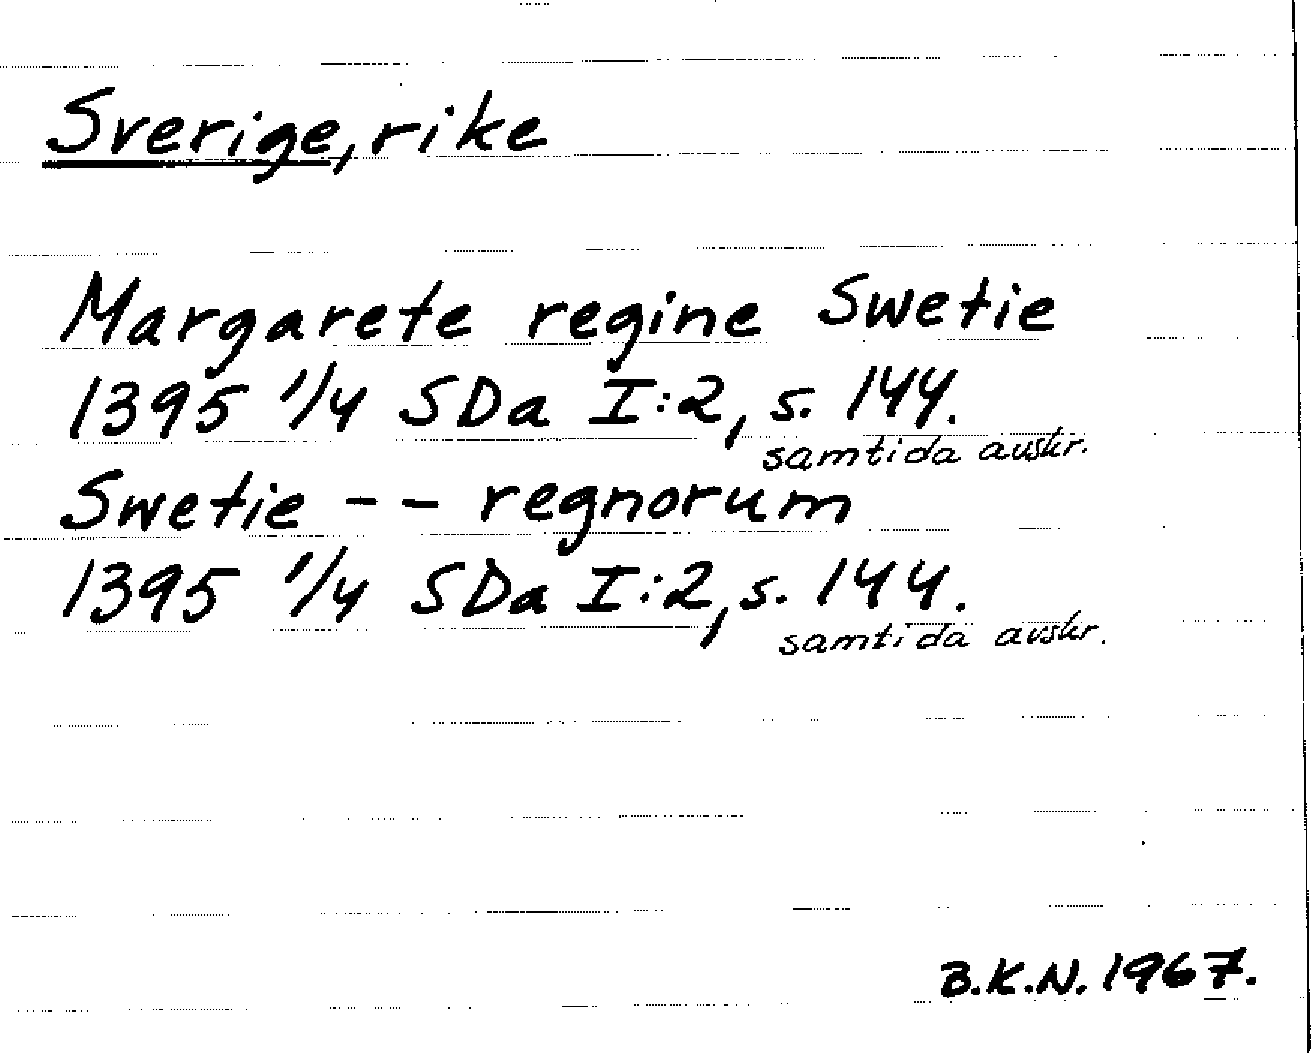 Sverige, rike
Margarete regine Swetie
1395 1/4 SDa I:2, s. 144.
samtida avskr.
Swetie -- regnorum
1395 1/4 SDa I:2, s. 144.
samtida avskr.
B.K.N. 1967.